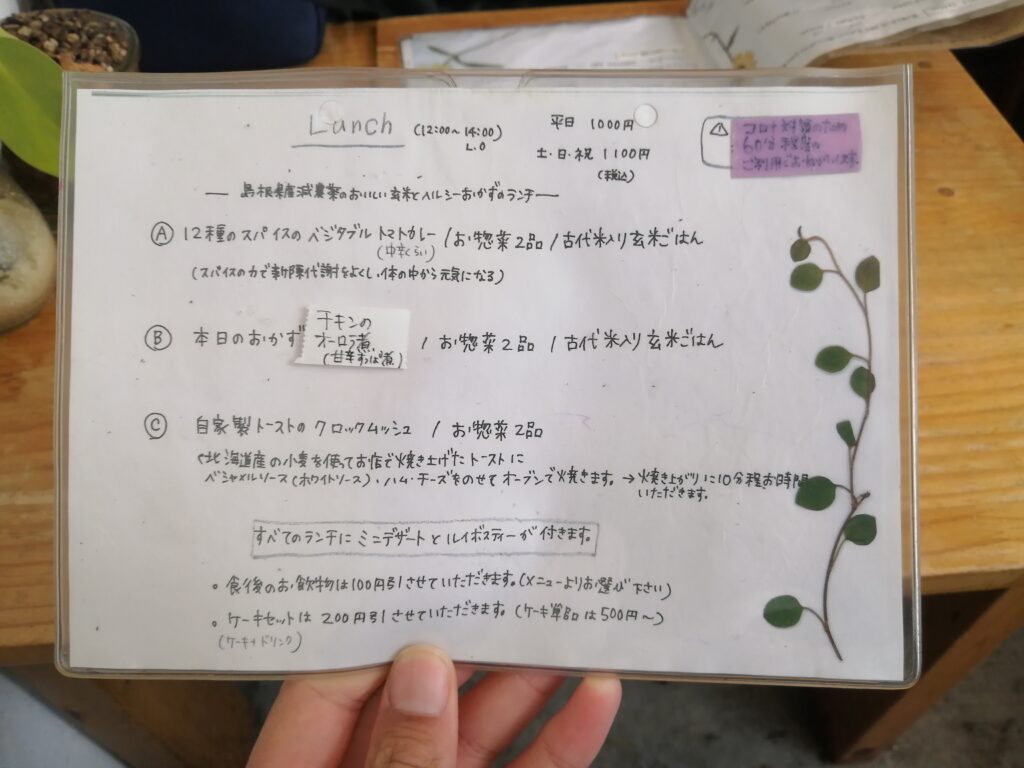 Lunch (12:00～14:00)
L.O
平日 1000円
土・日・祝 1100円
(税込)
⚠ コロナ対策のため
60分程度の
ご利用でお願いします。
― 島根県産減農薬のおいしい玄米とヘルシーおかずのランチ ―
Ⓐ 12種のスパイスのベジタブルトマトカレー / お惣菜2品 / 古代米入り玄米ごはん
(中辛くらい)
(スパイスの力で新陳代謝をよくし、体の中から元気になる)
Ⓑ 本日のおかず チキンの / お惣菜2品 / 古代米入り玄米ごはん
オーロラ煮
(甘辛すっぱ煮)
Ⓒ 自家製トーストのクロックムッシュ / お惣菜2品
(北海道産の小麦を使ってお店で焼き上げたトーストに
ベシャメルソース(ホワイトソース)・ハム・チーズをのせてオーブンで焼きます。→ 焼き上がりに10分程お時間
いただきます。
すべてのランチにミニデザートとルイボスティーが付きます。
。食後のお飲物は100円引させていただきます。(メニューよりお選び下さい)
。ケーキセットは200円引させていただきます。(ケーキ単品は500円～)
(ケーキ+ドリンク)